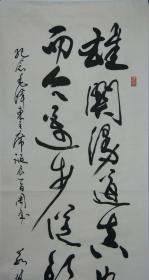 雄關漫道真
而今邁步從
紀念毛澤東主席誕辰一百周年